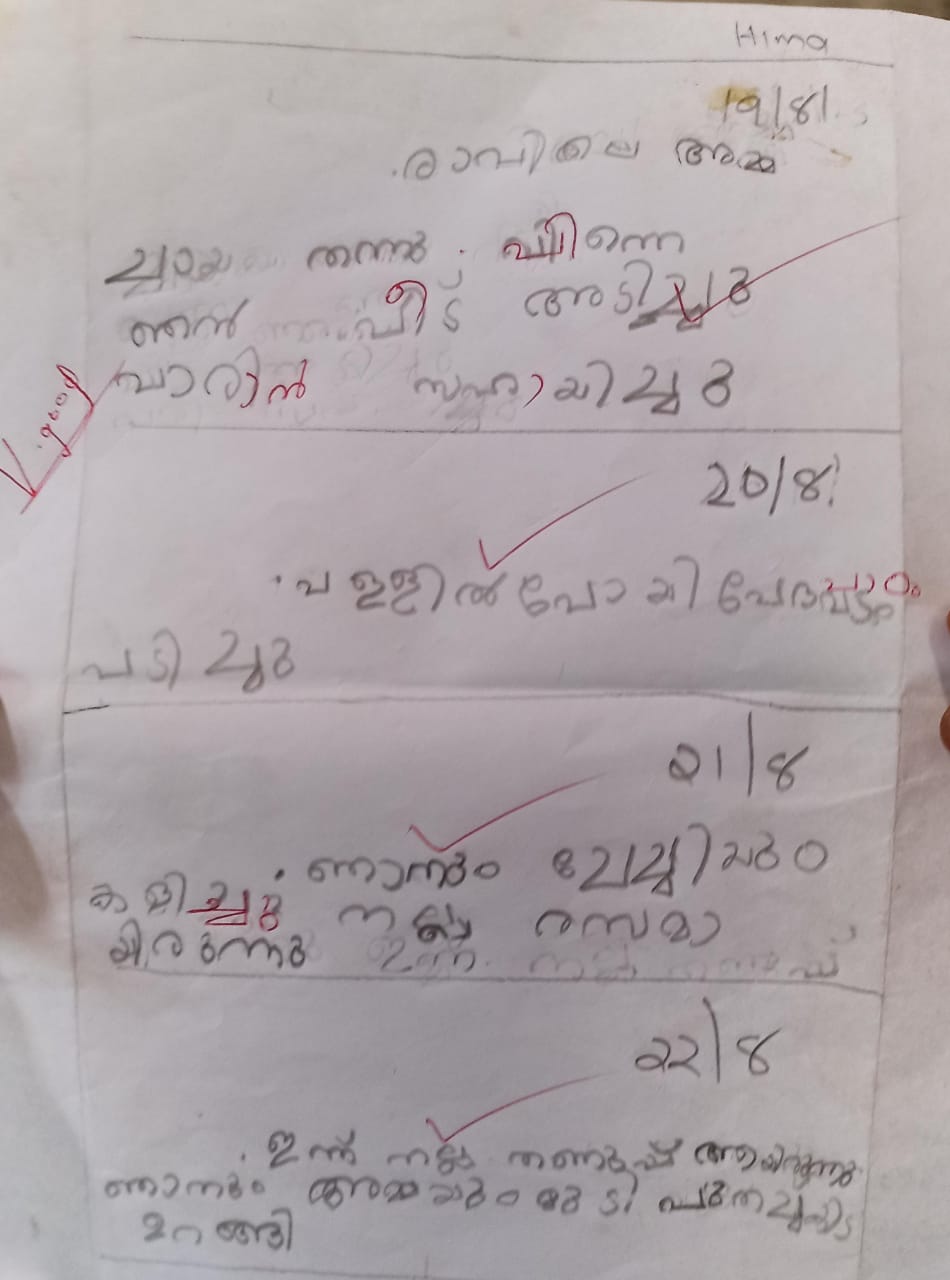 Hima
19/8/
രാവിലെ അമ്മ
ച്ചായ തന്നു. പിന്നെ
ഞൻ വീട് അടിച്ചു
വാരാൻ സഹായിച്ചു
V. good
20/8/
പള്ളിൽ പോയി വേദപാഠം
പടിച്ചു
21/8
ഞാനും ചേച്ചിയും
കളിച്ചു നല്ല രസമാ
യിരുന്നു
22/8
ഇന്ന് നല്ല തണുപ്പ് ആയിരുന്നു
ഞാനും അമ്മയും കുടി പുതച്ചുമൂടി
ഉറങ്ങി